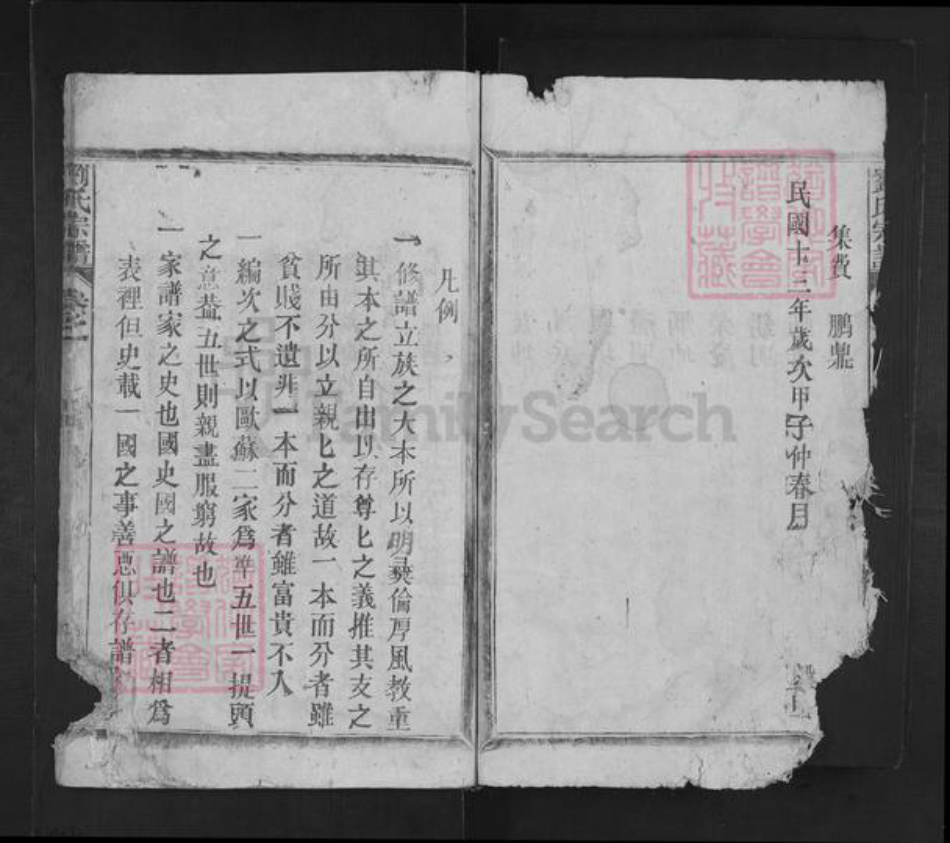 集費 鵬鼎
民國十三年歲次甲子仲春月
凡例
一修譜立族之大本所以明彝倫厚風教重
其本之所自出以存尊匕之義推其支之
所由分以立親匕之道故一本而分者雖
貧賎不遺非一本而分者雖富貴不入
一編次之式以歐蘇二家爲準五世一提頭
之意葢五世則親盡服窮故也
一家譜家之史也國史國之譜也二者相爲
表裡但史載一國之事善惡俱存譜
劉氏宗譜
卷之一
FamilySearch